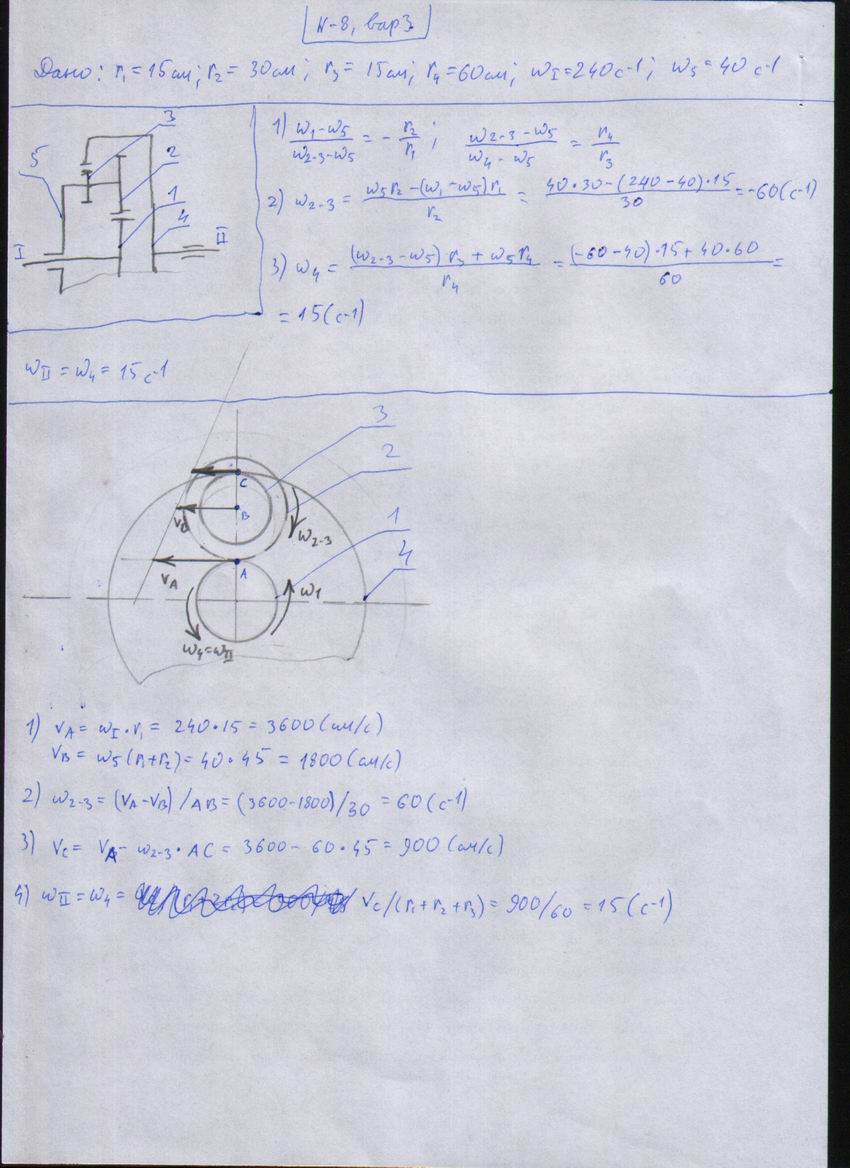 К-8, вар3
Дано: r₁ = 15 см; r₂ = 30 см; r₃ = 15 см; r₄ = 60 см; ω_I = 240 с⁻¹; ω₅ = 40 с⁻¹
3
5
2
1
4
I
II
1) (ω₁ - ω₅)/(ω₂₋₃ - ω₅) = - r₂/r₁; (ω₂₋₃ - ω₅)/(ω₄ - ω₅) = r₄/r₃
2) ω₂₋₃ = (ω₅r₂ - (ω₁ - ω₅)r₁)/r₂ = (40·30 - (240 - 40)·15)/30 = -60 (с⁻¹)
3) ω₄ = ((ω₂₋₃ - ω₅) r₃ + ω₅ r₄)/r₄ = ((-60 - 40)·15 + 40·60)/60 =
= 15 (с⁻¹)
ω_II = ω₄ = 15 с⁻¹
3
2
C
B
V_B
ω₂₋₃
1
4
A
V_A
ω1
ω₄ = ω_II
1) V_A = ω_I · r₁ = 240·15 = 3600 (см/с)
V_B = ω₅ (r₁ + r₂) = 40·45 = 1800 (см/с)
2) ω₂₋₃ = (V_A - V_B) / AB = (3600 - 1800)/30 = 60 (с⁻¹)
3) V_C = V_A - ω₂₋₃ · AC = 3600 - 60·45 = 900 (см/с)
4) ω_II = ω₄ = V_C/(r₁ + r₂ + r₃) = 900/60 = 15 (с⁻¹)